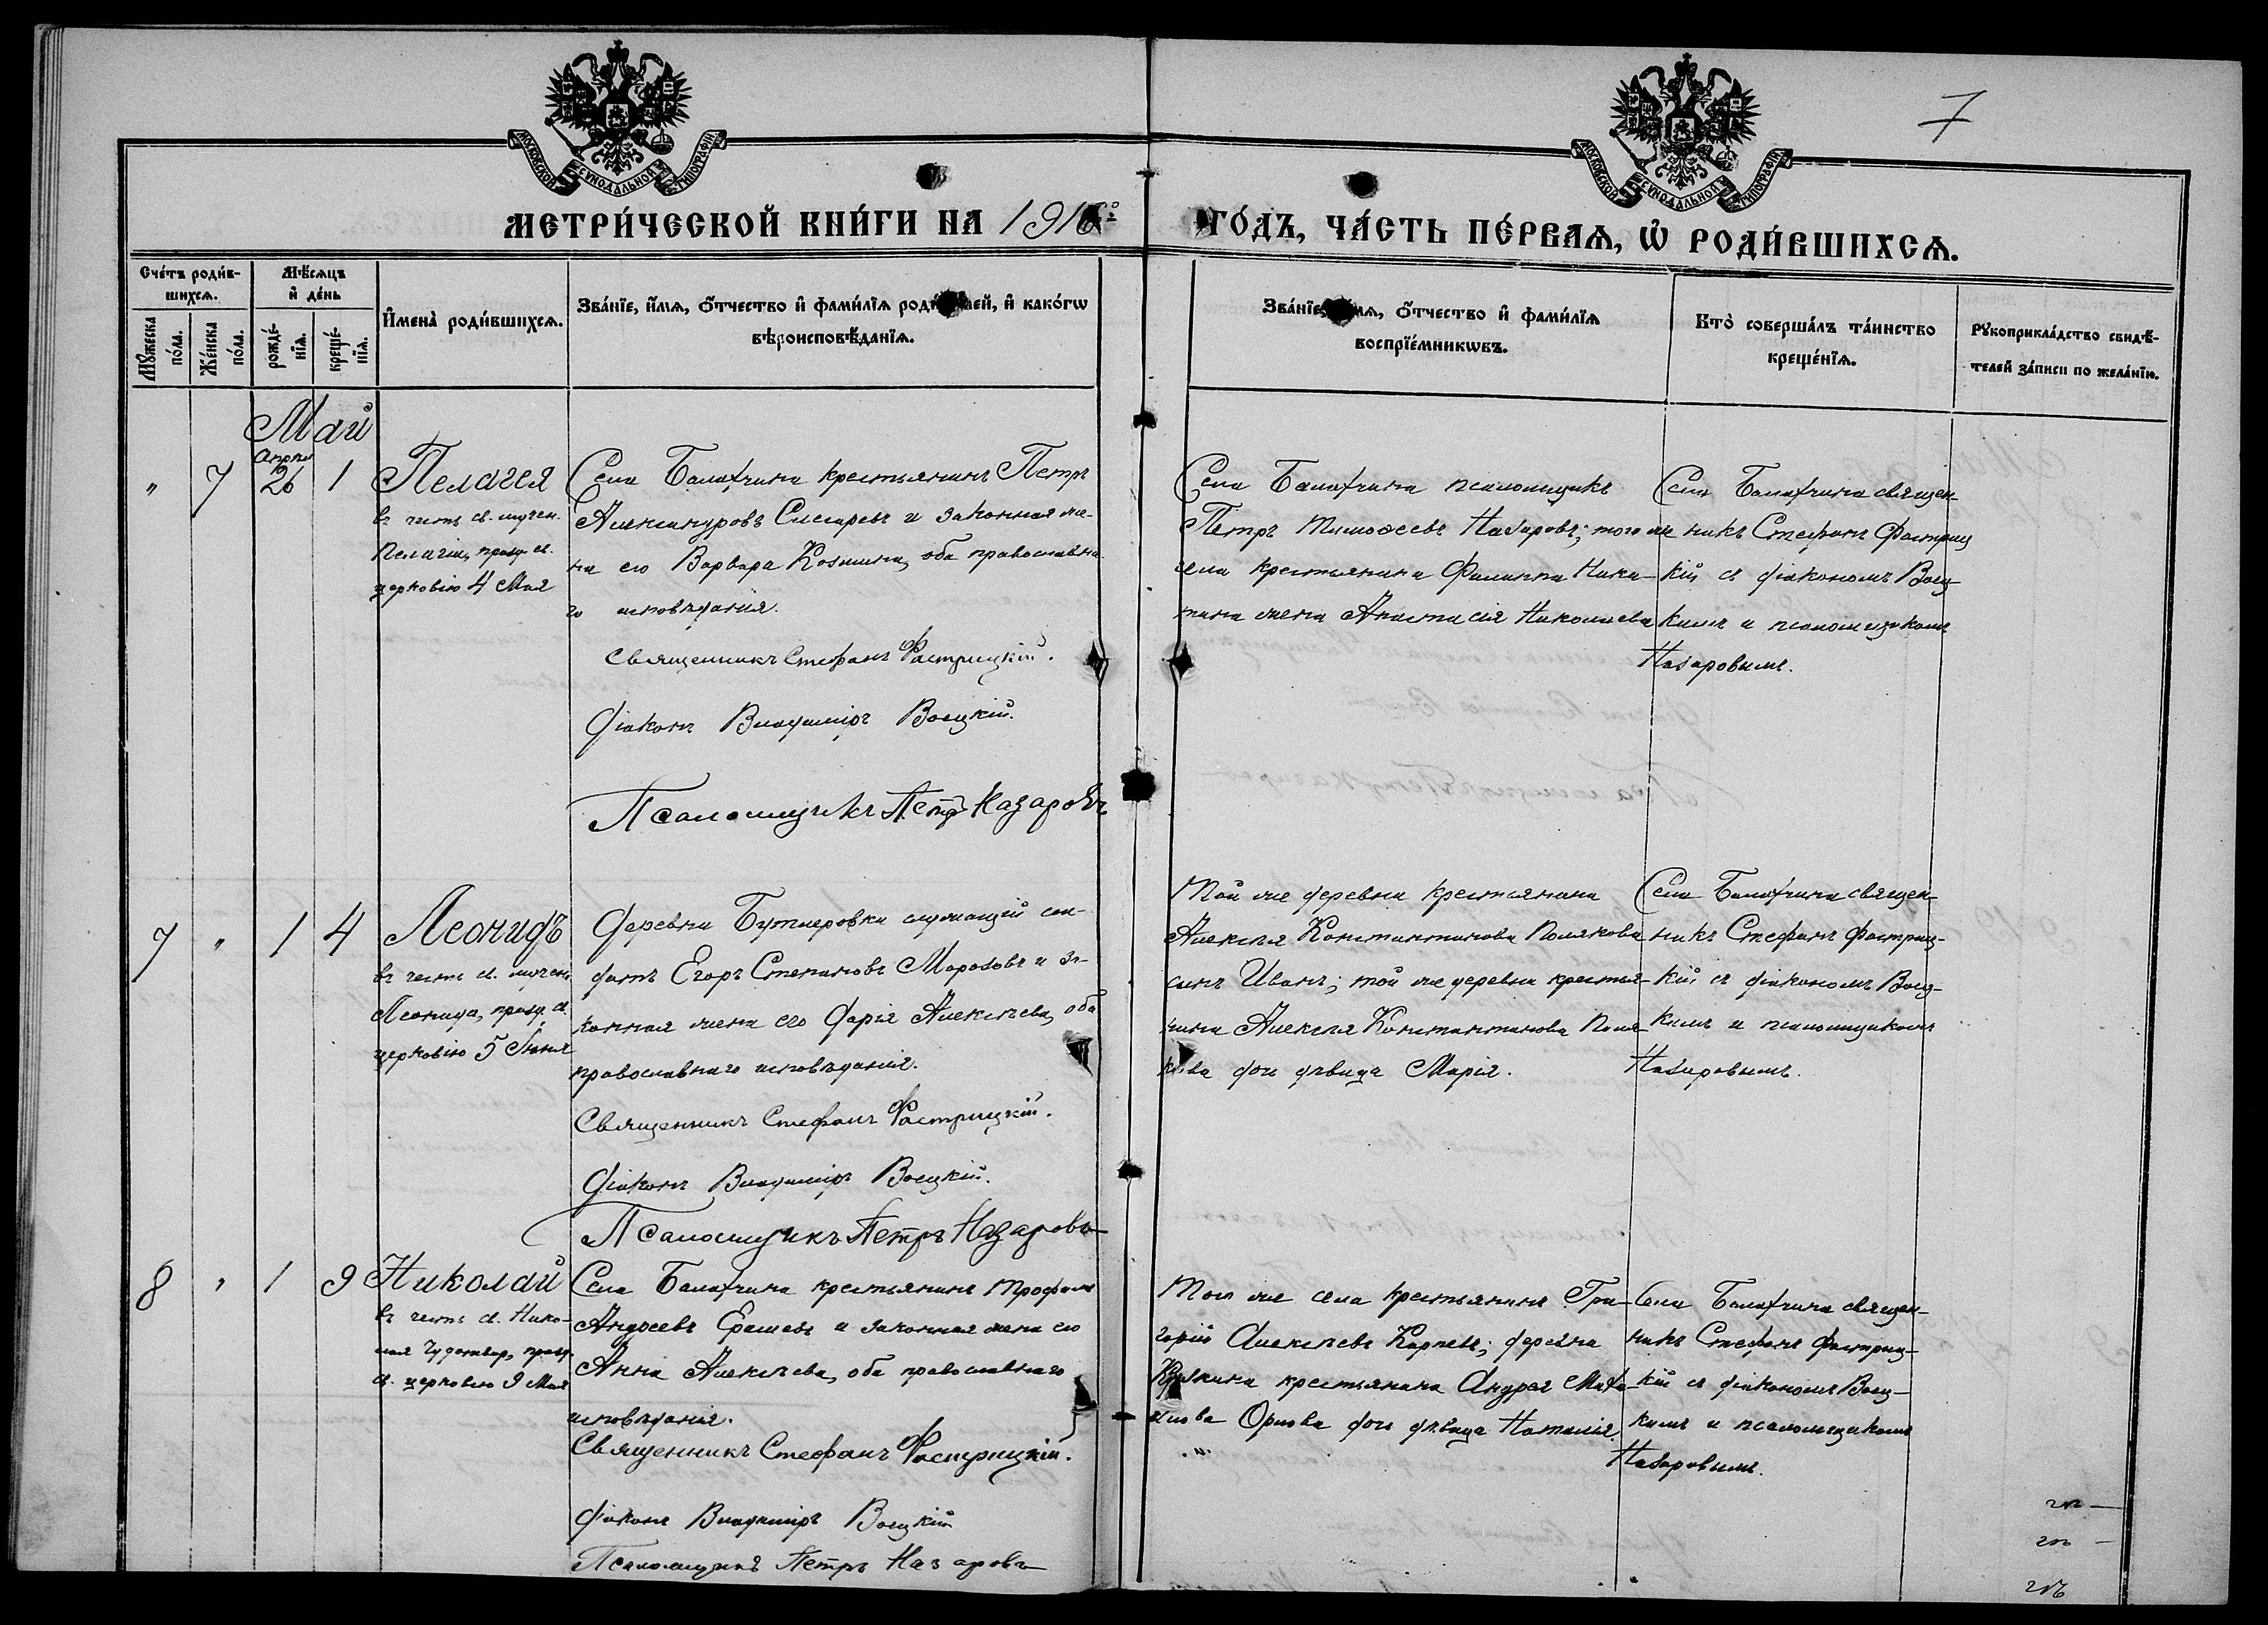 7
МОСКОВСКОЙ СѴНОДАЛЬНОЙ ТИПОГРАФІИ
МОСКОВСКОЙ СѴНОДАЛЬНОЙ ТИПОГРАФІИ
МЕТРИ́ЧЕСКОЙ КНИ́ГИ НА 1916го
ГО́ДЪ, ЧА́СТЬ ПЕ́РВАѦ, Ѡ҆ РОДИ́ВШИХСѦ.
Сче́тъ роди́в-
шихсѧ.
Мꙋ́жеска по́ла.
Же́нска по́ла.
Мѣ́сѧцъ
и҆ де́нь
рожде́-
нїѧ.
креще́-
нїѧ.
И҆мена̀ роди́вшихсѧ.
Зва́нїе, и҆́мѧ, ѻ҆́тчество и҆ фами́лїѧ роди́телей, и҆ како́гѡ
вѣроисповѣ́данїѧ.
Зва́нїе, и҆́мѧ, ѻ҆́тчество и҆ фами́лїѧ
воспрїе́мникѡвъ.
Кто̀ соверша́лъ та́инство
креще́нїѧ.
Рꙋкоприкла́дство свидѣ́-
телей за́писи по жела́нїю.
Май
" 7 Апрѣл 26 1
Пелагея
въ честь св. мучен.
Пелагіи, празд. св.
церковію 4 Мая
Села Балахчина крестьянинъ Петръ
Александровъ Слесаревъ и законная же-
на его Варвара Козьмина, оба православна-
го исповѣданія.
Священникъ Стефанъ Фастрицкій.
Діаконъ Владиміръ Воецкій.
Псаломщикъ Петръ Назаровъ
Села Балахчина псаломщикъ
Петръ Тимоѳеевъ Назаровъ; того же
села крестьянина Филиппа Ники-
тина жена Анастасія Николаева
Села Балахчина священ-
никъ Стефанъ Фастриц-
кій съ діакономъ Воец-
кимъ и псаломщикомъ
Назаровымъ.
7 " 1 4
Леонидъ
въ честь св. мучен.
Леонида, празд. св.
церковію 5 Іюня
Деревни Бутлеровки служащій сол-
датъ Егоръ Степановъ Морозовъ и за-
конная жена его Дарія Алексѣева, оба
православнаго исповѣданія.
Священникъ Стефанъ Фастрицкій.
Діаконъ Владиміръ Воецкій.
Псаломщикъ Петръ Назаровъ
Той же деревни крестьянина
Алексѣя Константинова Полякова
сынъ Иванъ; той же деревни крестья-
нина Алексѣя Константинова Поля-
кова дочь дѣвица Марія.
Села Балахчина священ-
никъ Стефанъ Фастриц-
кій съ діакономъ Воец-
кимъ и псаломщикомъ
Назаровымъ.
8 " 1 9
Николай
въ честь св. Нико-
лая Чудотвор, празд.
св. церковію 9 Мая
Села Балахчина крестьянинъ Трофимъ
Андреевъ Ерашевъ и законная жена его
Анна Алексѣева, оба православнаго
исповѣданія.
Священникъ Стефанъ Фастрицкій.
Діаконъ Владиміръ Воецкій
Псаломщикъ Петръ Назаровъ
Того же села крестьянинъ Гри-
горій Алексѣевъ Карпевъ; деревни
крестьянина Андрея Миха-
илова Орлова дочь дѣвица Наталія.
Села Балахчина священ-
никъ Стефанъ Фастриц-
кій съ діакономъ Воец-
кимъ и псаломщикомъ
Назаровымъ.